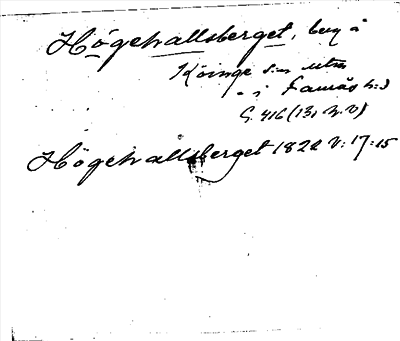 Högehallsberget, berg å
Köinge s:n utm
i Famås h:d
G. 416 (13, h. v)
Högehallsberget 1822 V: 17: 15